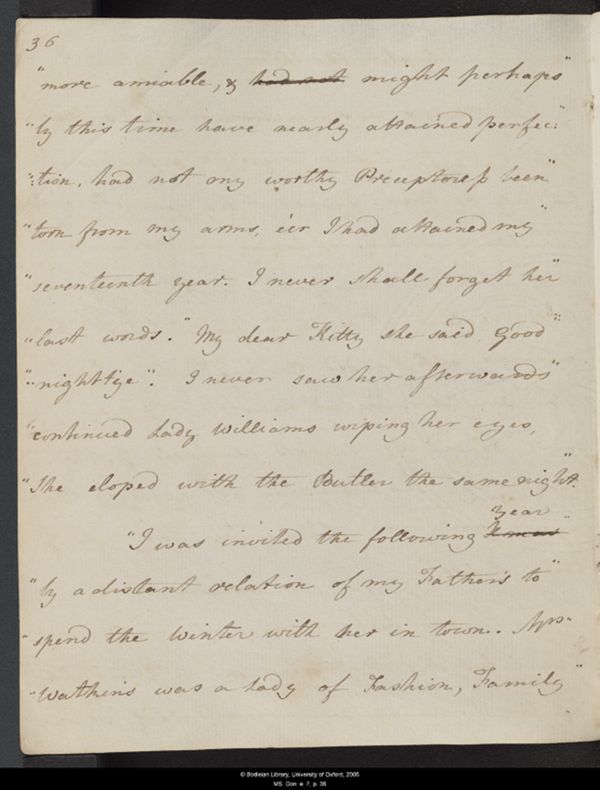 36
"more amiable, & had not might perhaps"
"by this time have nearly attained perfec:"
":tion, had not my worthy Preceptoress been"
"torn from my arms, e'er I had attained my"
"seventeenth year. I never shall forget her"
"last words. "My dear Kitty she said, Good"
":night t'ye". I never saw her afterwards"
"continued Lady Williams wiping her eyes,
"She eloped with the Butler the same night".
"I was invited the following year
"by a distant relation of my Father's to"
"spend the Winter with her in town. Mrs"
"Watkins was a Lady of Fashion, Family"
© Bodleian Library, University of Oxford, 2006
MS. Don. e. 7, p. 36